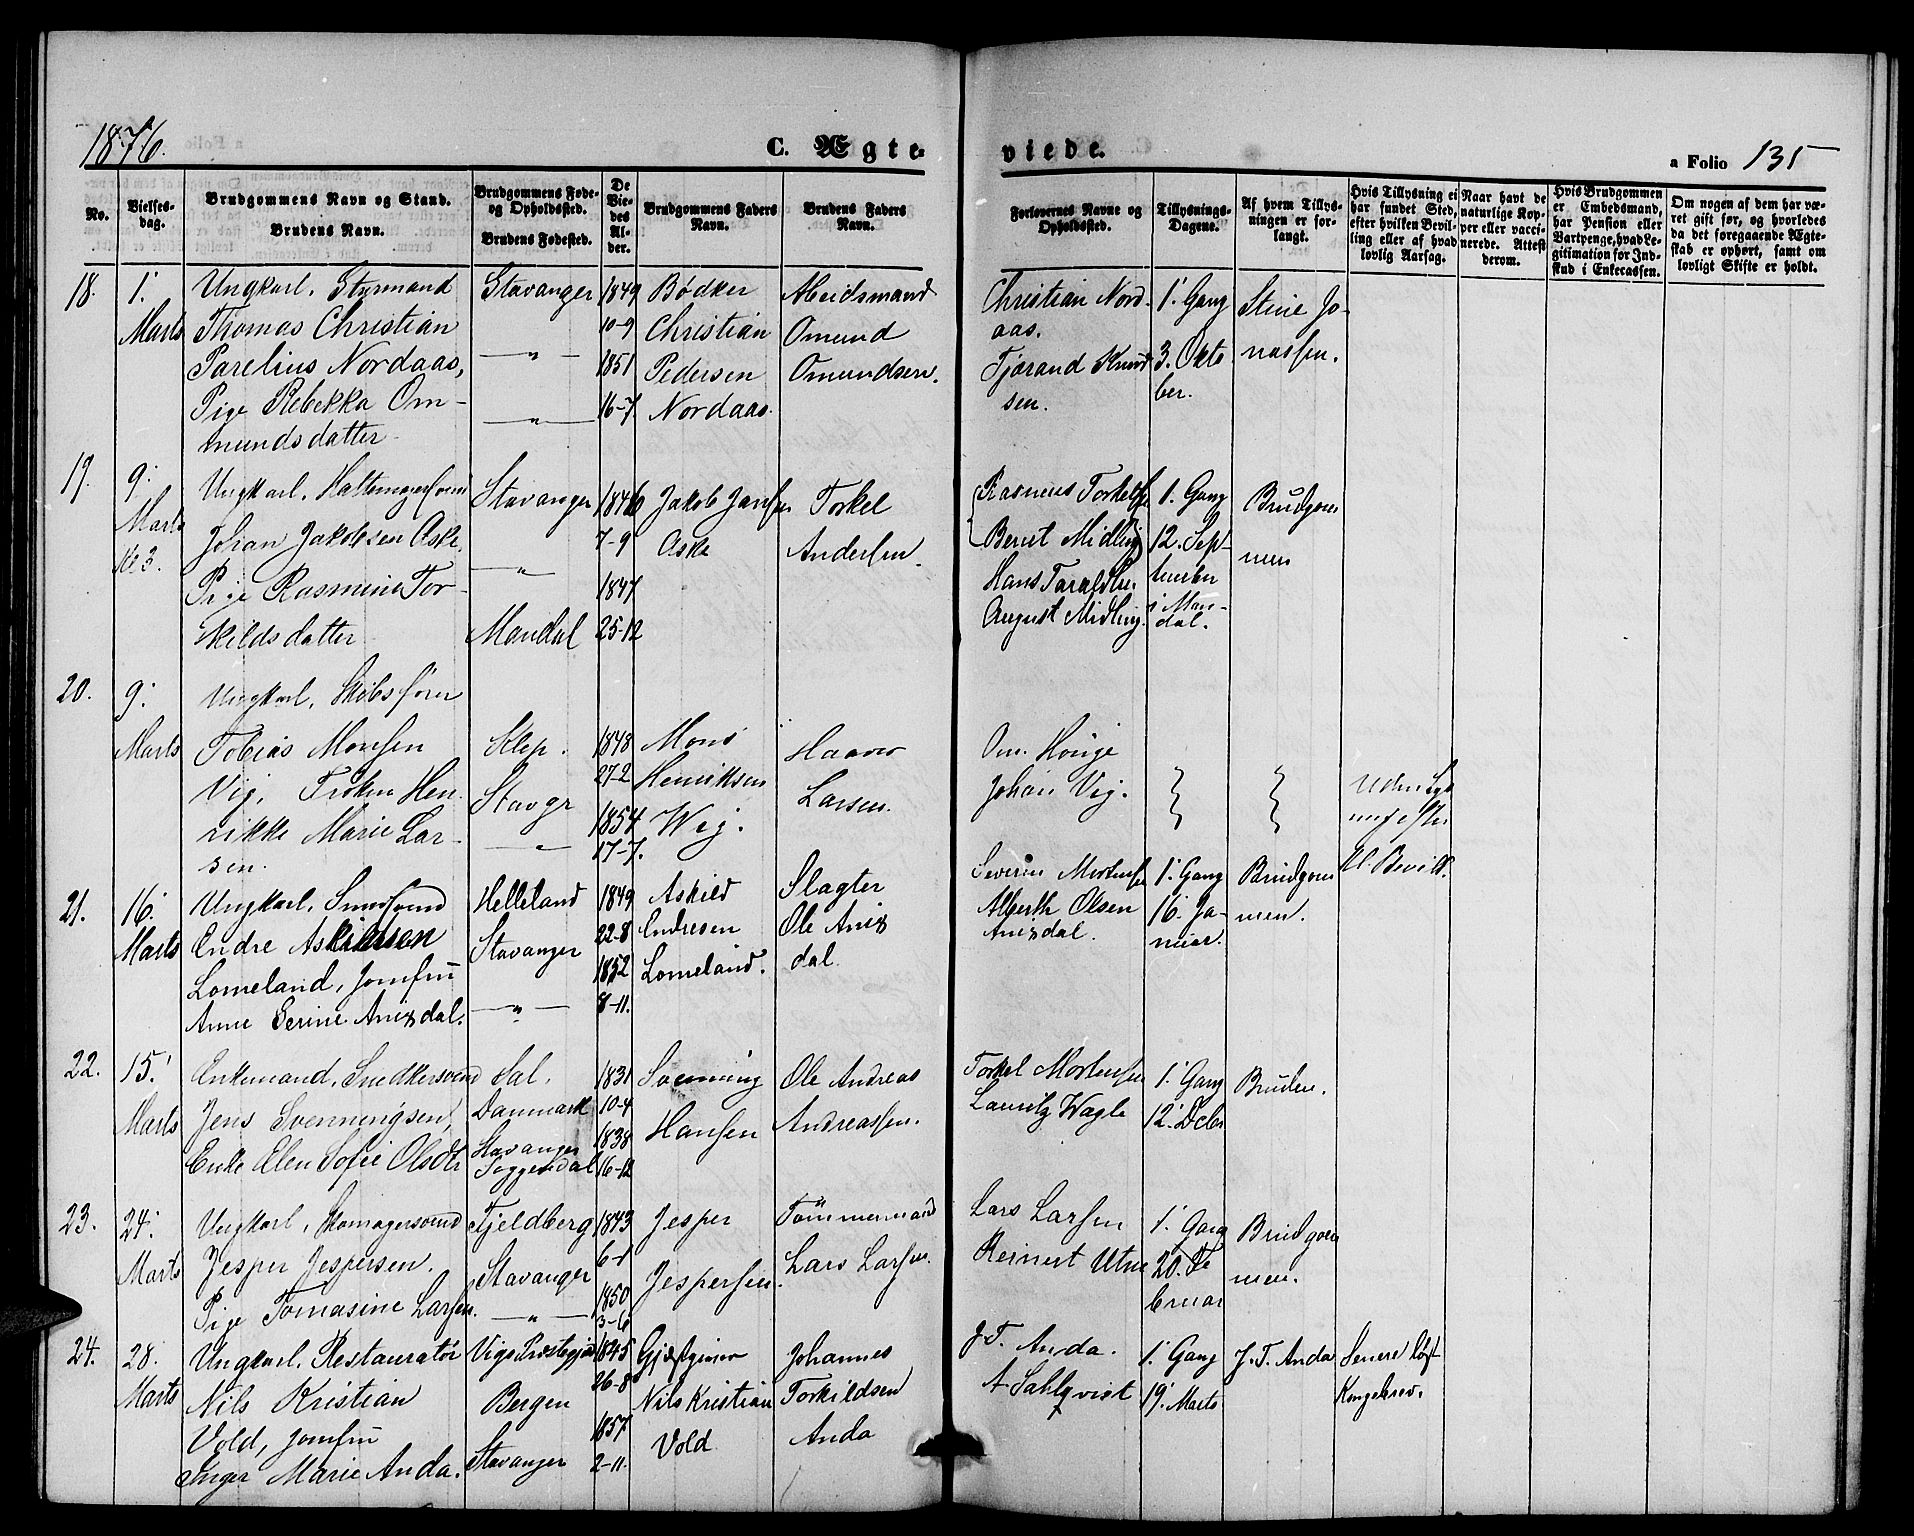 1876.
C. Ægte-
viede.
a Folio 135
No.
Vielses-
dag.
Brudgommens Navn og Stand.
Brudens Navn.
Brudgommens Føde-
og Opholdssted.
Brudens Fødested.
De
Vie-
des
Al-
der.
Brudgommens Faders
Navn.
Brudens Faders
Navn.
Forlovernes Navne og
Opholdssted.
Tillysnings-
Dagene.
Af hvem Tillys-
ningen er for-
langt.
Hvis Tillysning ei
har fundet Sted,
efter hvilken Bevil-
ling eller af hvad
lovlig Aarsag.
Naar havt de
naturlige Kop-
per eller vacci-
nerede. Attest
derom.
Hvis Brudgommen
er Embedsmand,
har Pension eller
Vartpenge, hvad Le-
gitimation for Ind-
skud i Enkecassen.
Om nogen af dem har væ-
ret gift før, og hvorledes
da det foregaaende Ægte-
skab er ophørt, samt om
lovligt Skifte er holdt.
18.
1.
Marts
Ungkarl, Styrmand
Thomas Christian
Parelius Nordaas,
Pige Rebekka Om-
mundsdatter.
Stavanger
— " —
— " —
1849
10-9
1851
16-7
Bødker
Christian
Pedersen
Nordaas.
Abeidsmand
Omund
Omundsen.
Christian Nord-
aas.
Tjørand Knud
sen.
1. Gang
3. Okto
ber.
Stine Jo-
nassen.
19.
9.
Marts
Kl 3.
Ungkarl, Hattemagersvend
Johan Jakobsen Aske.
Pige Rasmine Tor-
kildsdatter
Stavanger
— " —
Mandal
1846
7-9
1847
25-12
Jakob Jansen
Aske
Torkel
Andersen.
Rasmus Torkelse
Bernt Midling
Hans Taraldsen
August Midling.
1. Gang
12. Sep-
tember
i Man-
dal.
Brudgom
men
20.
9.
Marts
Ungkarl, Skibsfører
Tobias Monsen
Vig, Frøken Hen
rikke Marie Lar-
sen.
Klep.
Stavgr
— " —
1848
27-2
1854
17-7.
Mons
Henriksen
Wig.
Haaver
Larsen.
Om. Houge
Johan Vig.
Uden Lys
ning efter
kl. Bevill.
21.
16.
Marts
Ungkarl, Smedsvend
Endre Askildsen
Lomeland, Jomfru
Anne Serine Anixdal.
Helleland
Stavanger
— " —
1849
22-8
1852
8-11.
Askild
Endresen
Lomeland.
Slagter
Ole Anix
dal.
Severin Mortense
Alberth Olsen
Anixdal.
1. Gang
16. Ja-
nuar.
Brudgom
men.
22.
15.
Marts
Enkemand, Snedkersvend
Jens Svenningsen,
Enke Elen Sofie Olsdtr
Sal.
Danmark
Stavanger
Soggendal
1831
10-4
1838
16-12
Svenning
Hansen
Ole Andreas
Andreassen.
Torkel Mortensen
Lauritz Wagle
1. Gang
12. Debr
Bruden.
23.
24.
Marts
Ungkarl, Skomagersvend
Jesper Jespersen.
Pige Tomasine Larsen.
Fjeldberg
Stavanger
— " —
1843
6-1
1850
3-6
Jesper
Jespersen.
Tømmermand
Lars Larsen.
Lars Larsen
Reinert Utne
1. Gang
20. Fe
bruar
Brudgom
men.
24.
28.
Marts
Ungkarl, Restauratør
Nils Kristian
Vold, Jomfru
Inger Marie Anda.
Vigs Præstegjæ
Bergen
Stavanger
1845
26-8
1857
2-11.
Gjæstgiver
Nils Kristian
Vold
Johannes
Torkildsen
Anda
J. T. Anda.
A Sahlqvist
1. Gang
19. Marts
J. T. Anda
Senere løst
Kongebrev.